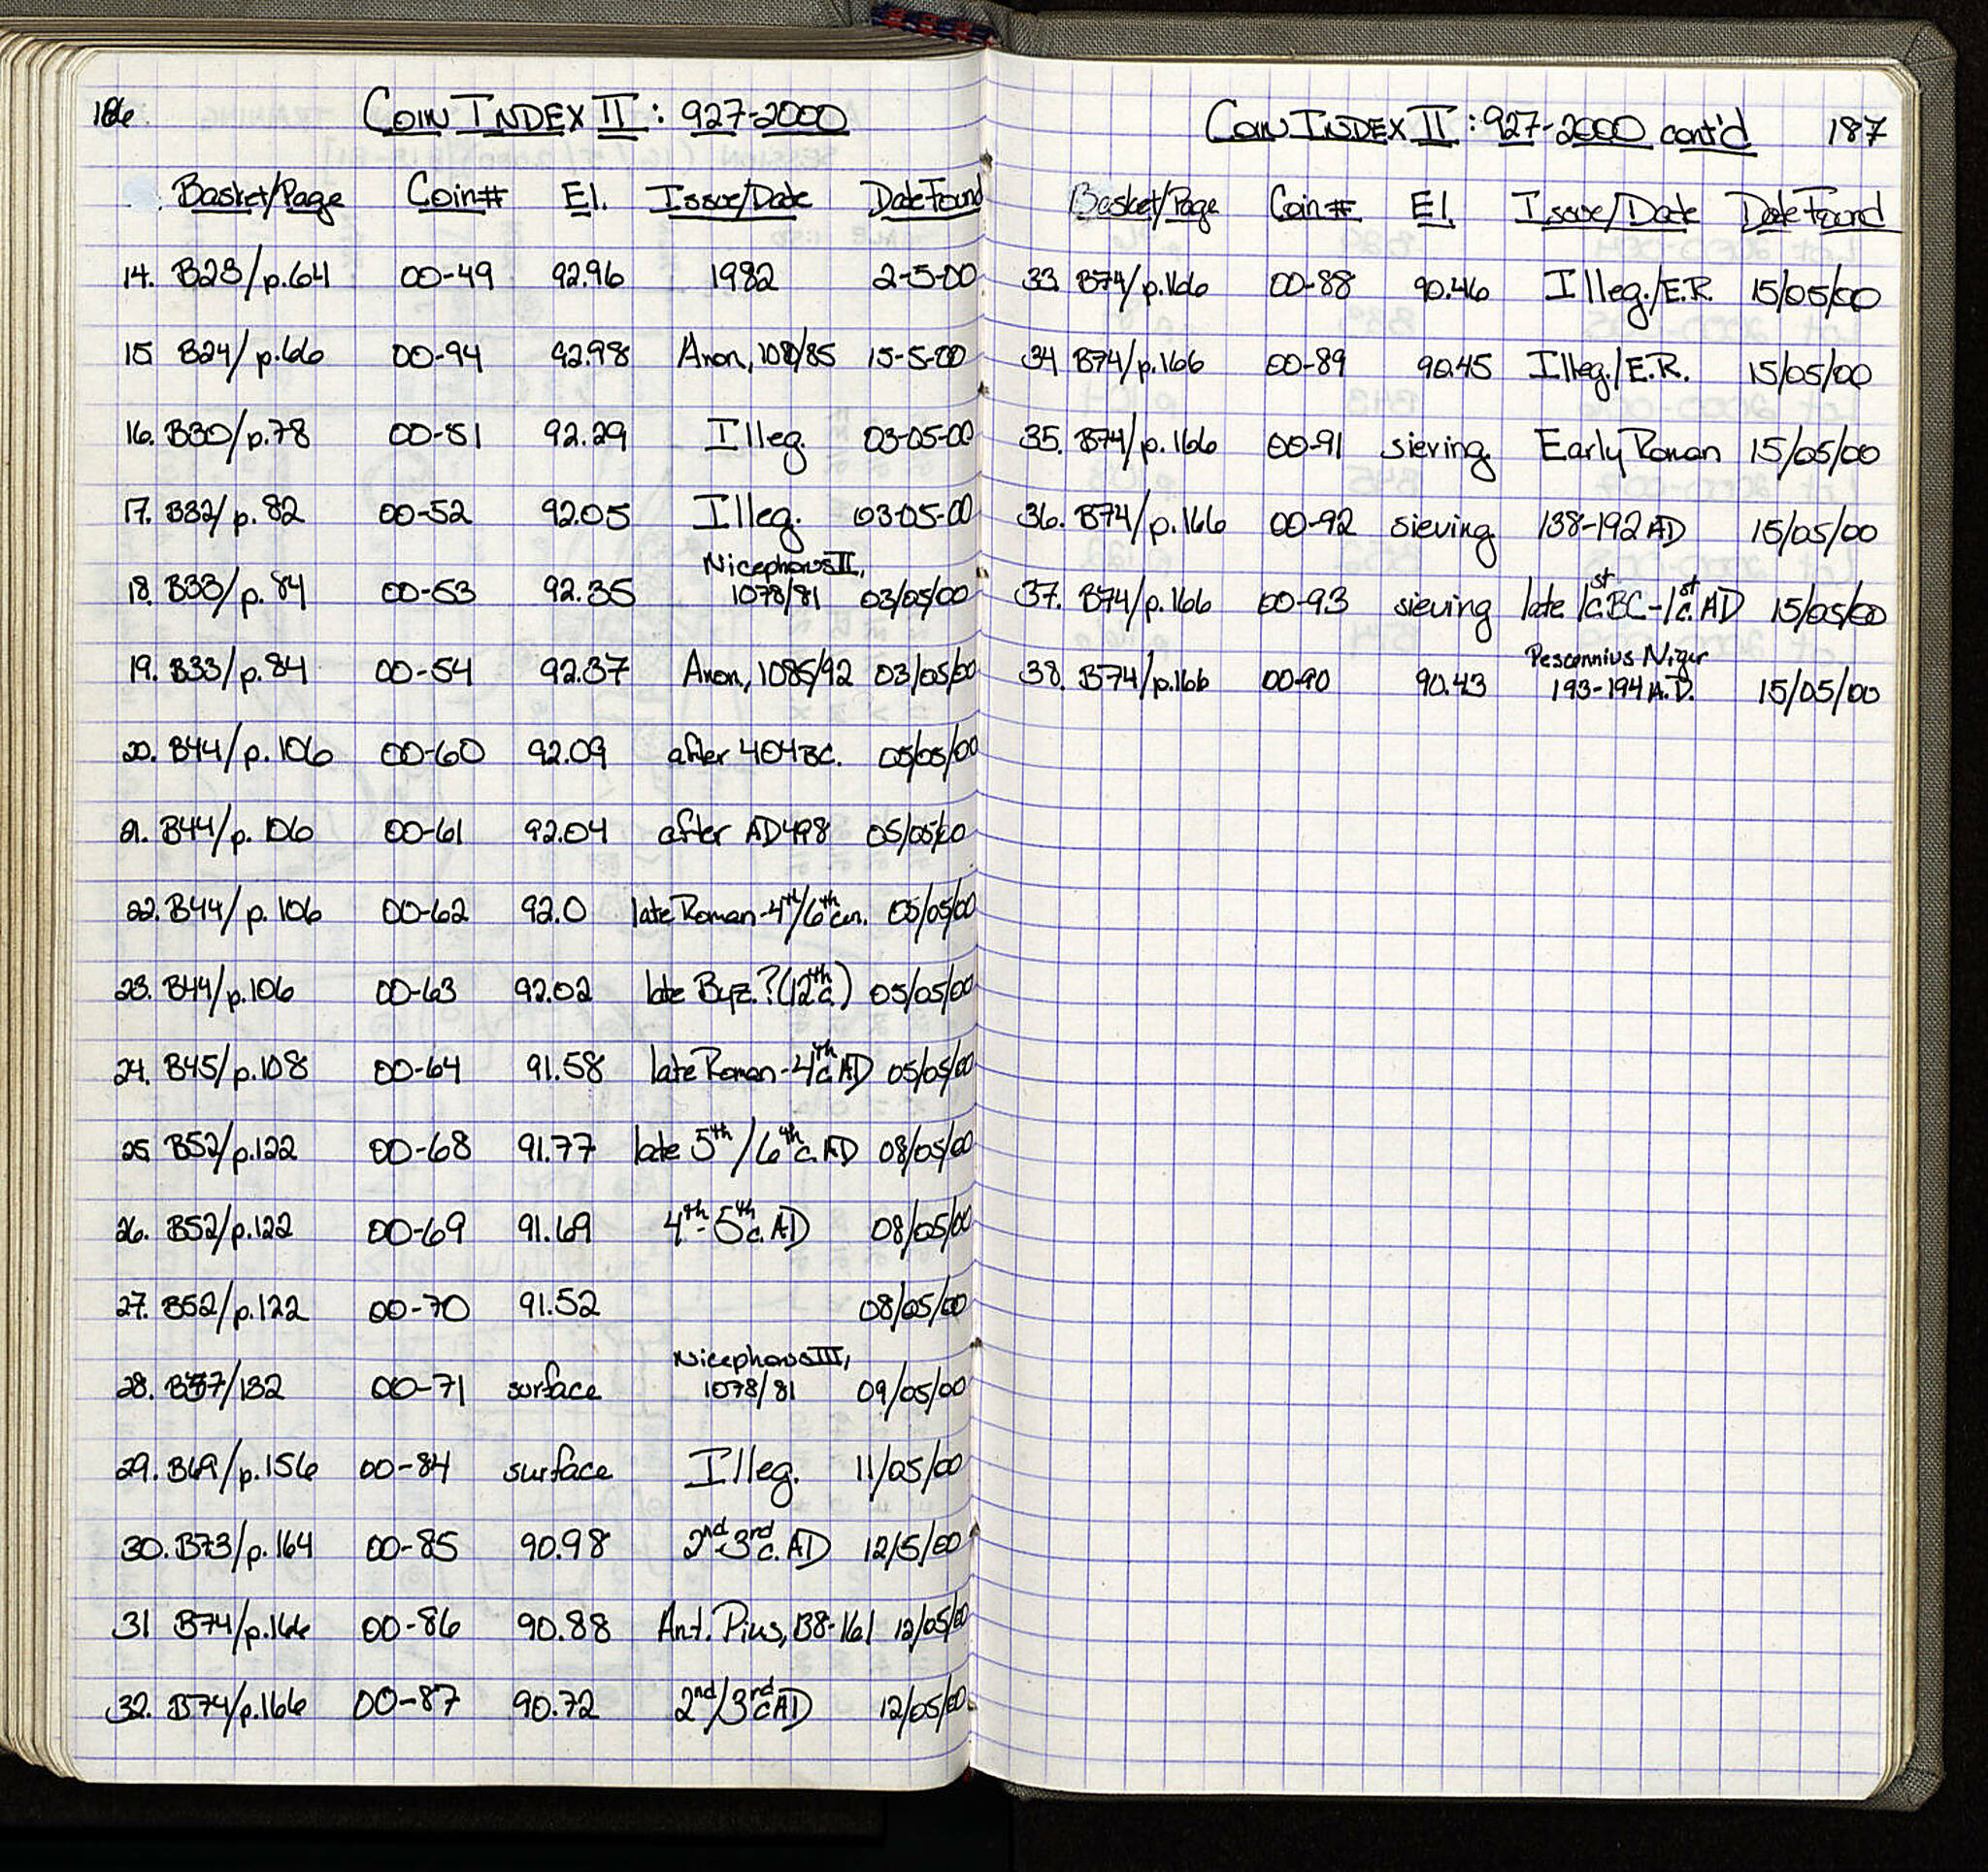 186 COIN INDEX II: 927-2000
Basket/Page Coin# El. Issue/Date Date Found
14. B23/p.64 00-49 92.96 1982 2-5-00
15 B24/p.66 00-94 92.98 Anon, 1080/85 15-5-00
16. B30/p.78 00-51 92.29 Illeg. 03-05-00
17. B32/p. 82 00-52 92.05 Illeg. 03-05-00
Nicephorus II,
18. B33/p. 84 00-53 92.35 1078/81 03/05/00
19. B33/p. 84 00-54 92.37 Anon, 1085/92 03/05/00
20. B44/p. 106 00-60 92.09 after 404 BC. 05/05/00
21. B44/p. 106 00-61 92.04 after AD 498 05/05/00
22. B44/p. 106 00-62 92.0 late Roman-4th/6th cen. 05/05/00
23. B44/p.106 00-63 92.02 late Byz.? (12th c.) 05/05/00
24. B45/p.108 00-64 91.58 late Roman-4th c. AD 05/05/00
25 B52/p.122 00-68 91.77 late 5th/6th c. AD 08/05/00
26. B52/p.122 00-69 91.69 4th-5th c. AD 08/05/00
27. B52/p.122 00-70 91.52 08/05/00
Nicephorus III,
28. B57/132 00-71 surface 1078/81 09/05/00
29. B69/p.156 00-84 surface Illeg. 11/05/00
30. B73/p.164 00-85 90.98 2nd-3rd c. AD 12/5/00
31 B74/p.166 00-86 90.88 Ant. Pius, 138-161 12/05/00
32. B74/p.166 00-87 90.72 2nd/3rd c AD 12/05/00
COIN INDEX II: 927-2000 cont'd 187
Basket/Page Coin# El. Issue/Date Date Found
33. B74/p.166 00-88 90.46 Illeg./E.R. 15/05/00
34 B74/p.166 00-89 90.45 Illeg./E.R. 15/05/00
35. B74/p.166 00-91 sieving Early Roman 15/05/00
36. B74/p.166 00-92 sieving 138-192 AD 15/05/00
37. B74/p.166 00-93 sieving late 1st c. BC-1st c. AD 15/05/00
Pescennius Niger
38. B74/p.166 00-90 90.43 193-194 A.D. 15/05/00